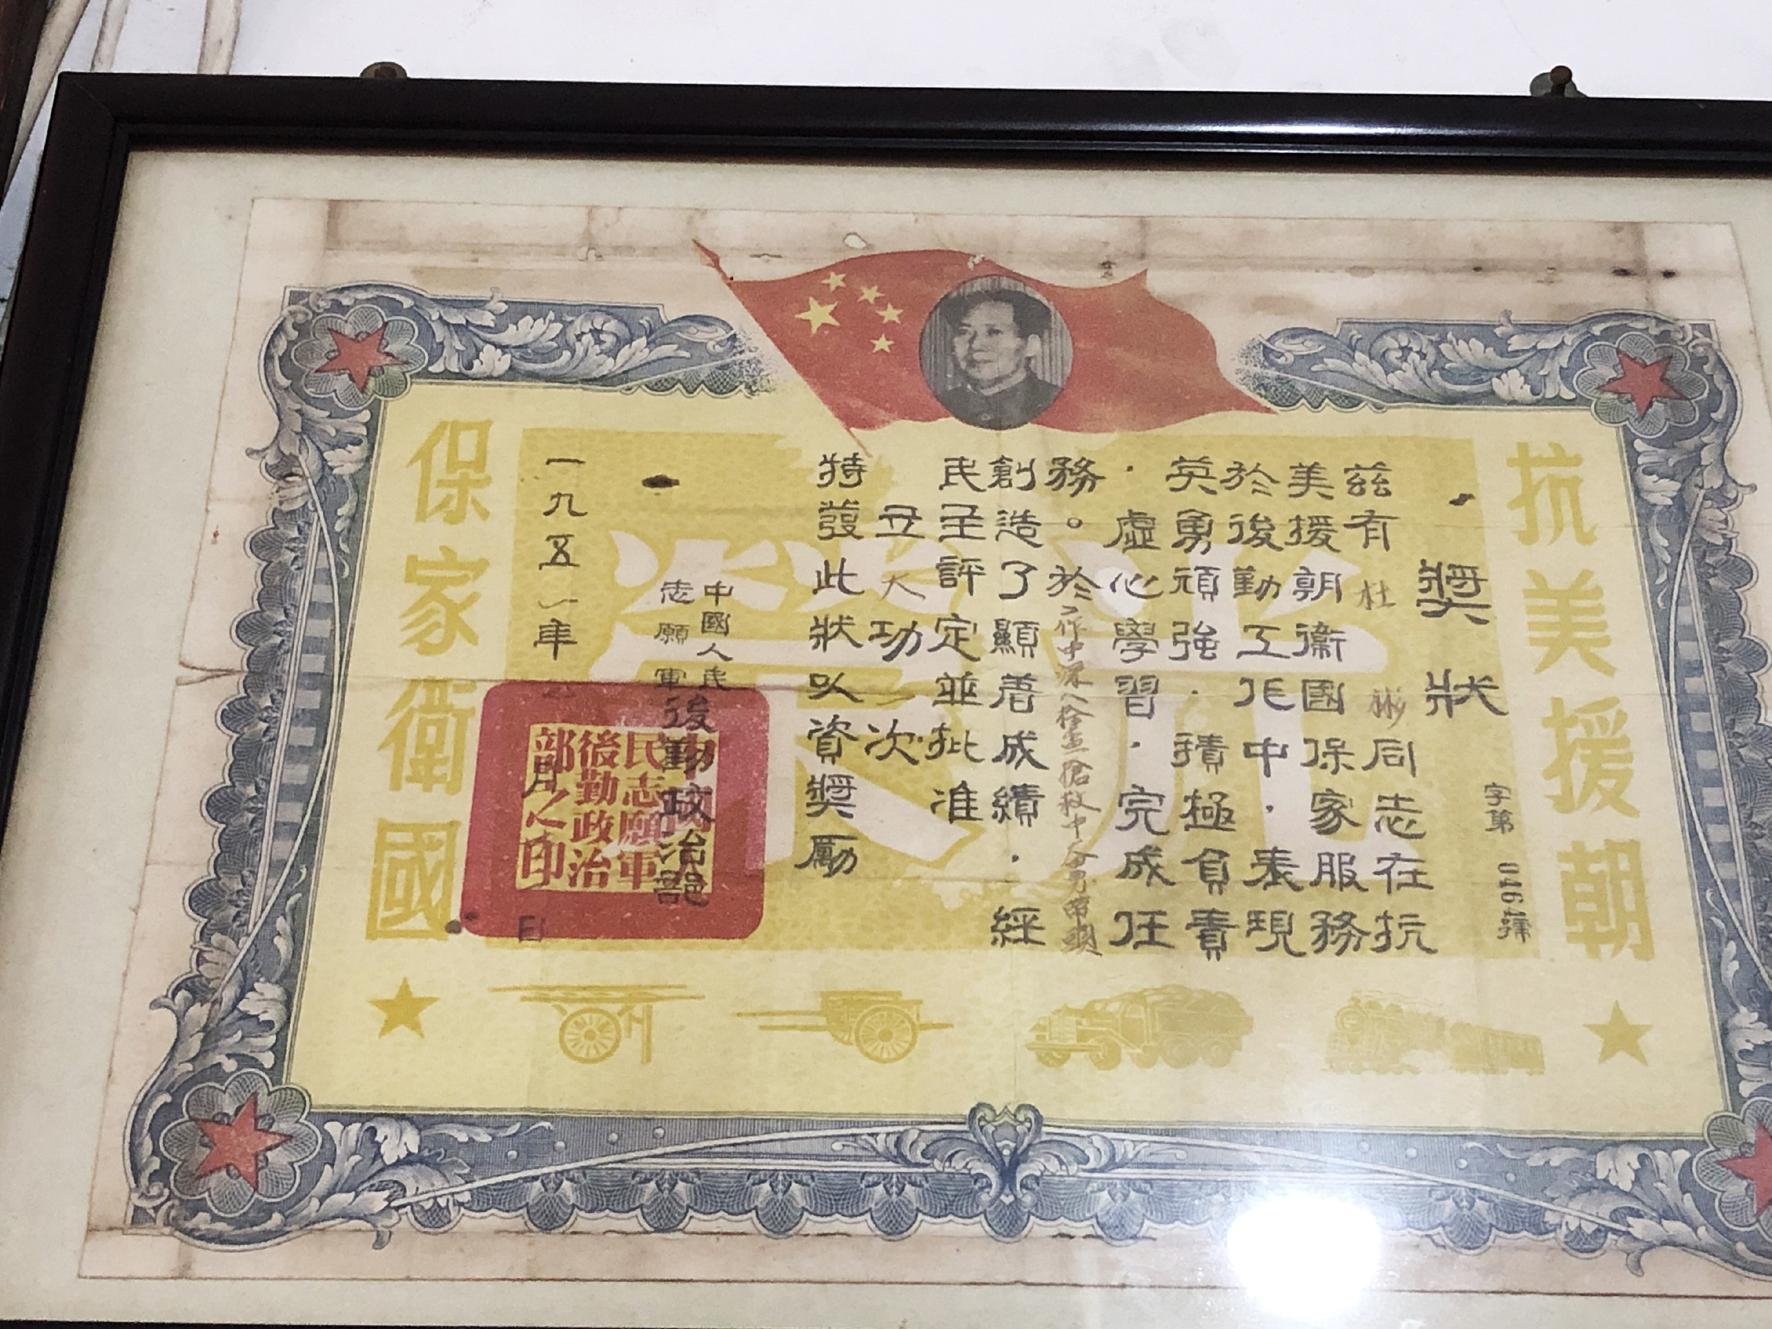 抗美援朝
獎狀
字第 號
茲有杜彬同志在抗
美援朝衞國保家服務
於後勤工作中，表現
英勇頑強，積極負責
，虛心學習，完成任
務。於工作中深入檢查搶救中
創造了顯著成績，經
民主評定並批准
立大功一次
特發此狀以資獎勵
中國人民
志願軍
後勤政治部
一九五 年
月
日
保家衛國
民志願軍
後勤政治
部之印